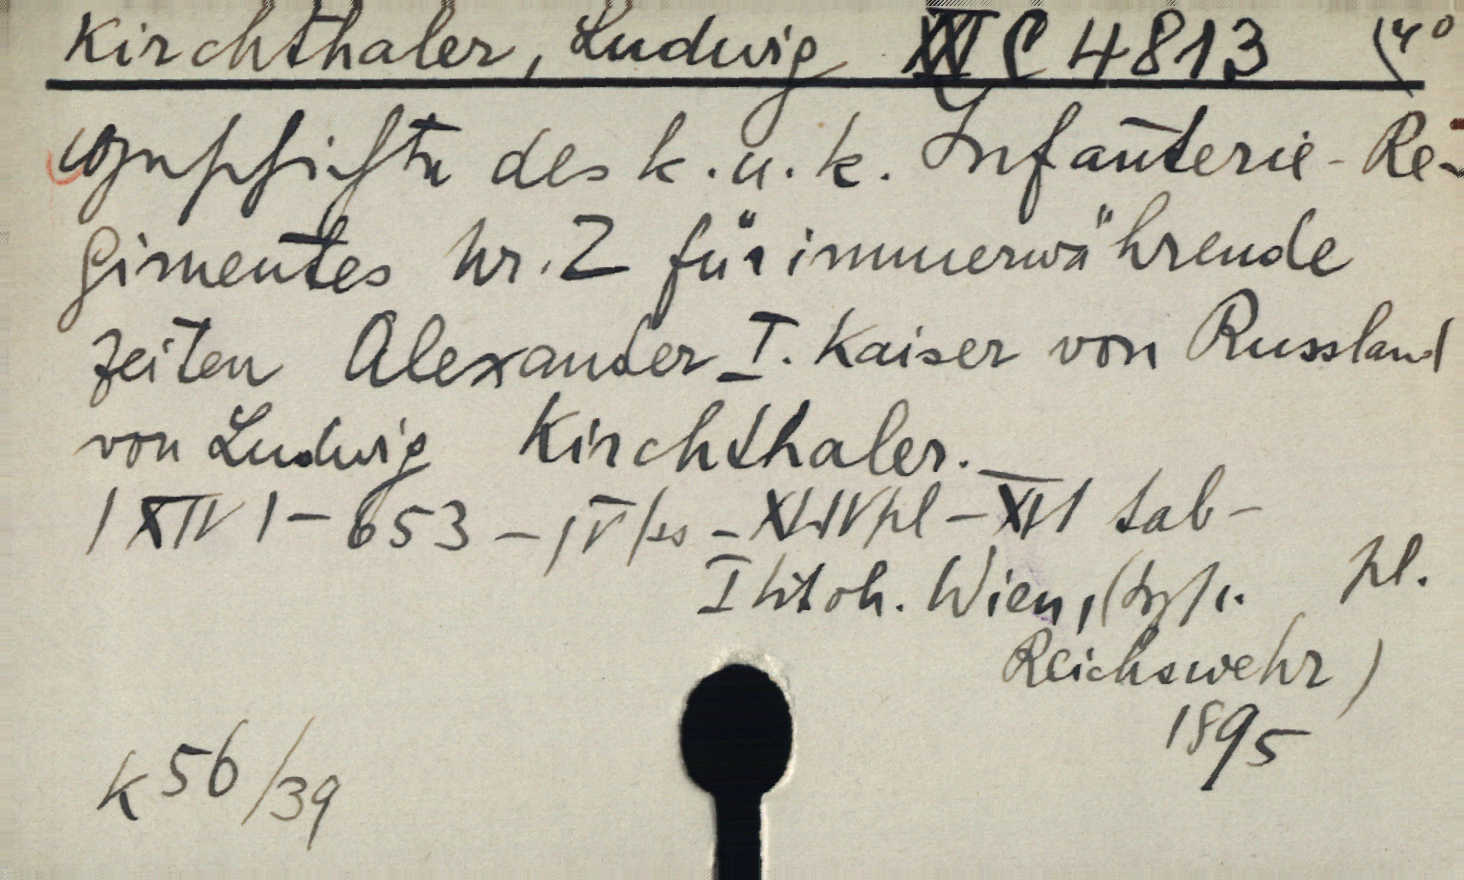 Kirchthaler, Ludwig XXI C 4813 (4°
Geschichte des k. u. k. Infanterie-Re-
gimentes Nr. 2 für immerwährende
Zeiten Alexander I. Kaiser von Russland
von Ludwig Kirchthaler.
/XIV/ - 653 - /V/ ss - pl - XVI tab -
I Wien, (typ. pl.
Reichswehr)
1895
K 56/39